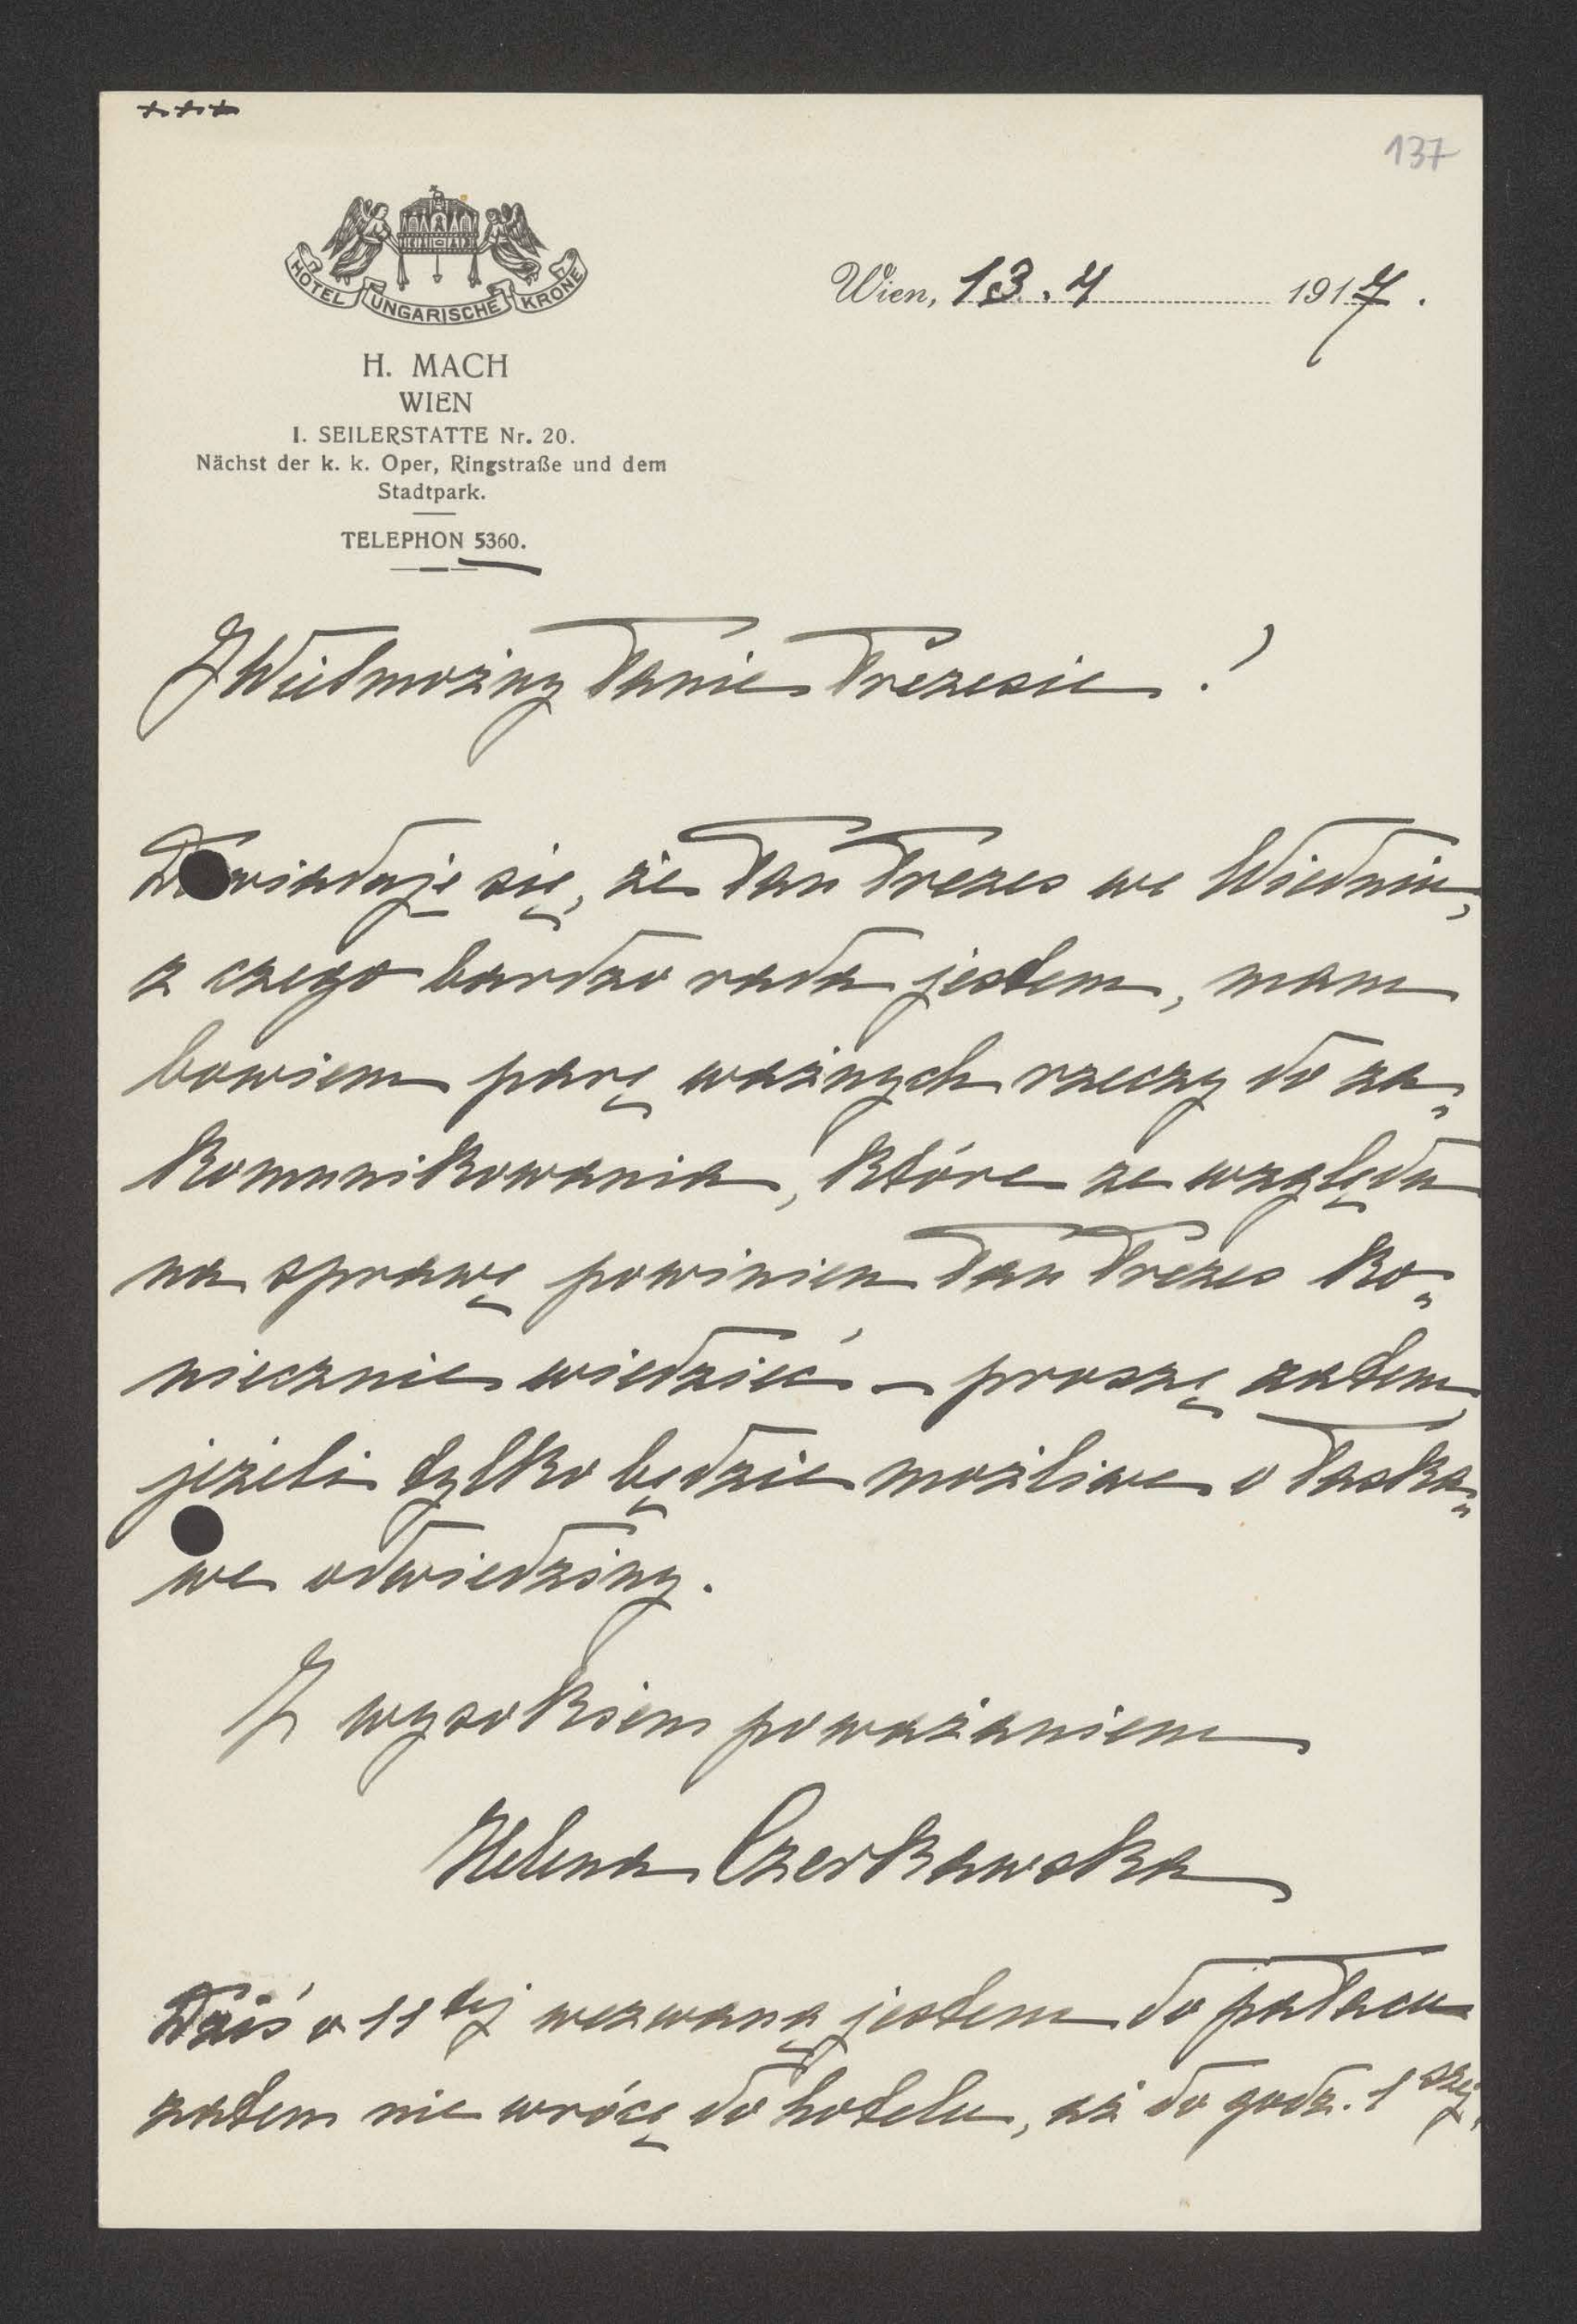 +++
137
HOTEL UNGARISCHE KRONE
Wien, 13.4 1917.
H. MACH
WIEN
I. SEILERSTATTE Nr. 20.
Nächst der k. k. Oper, Ringstraße und dem
Stadtpark.
TELEPHON 5360.
JWielmożny Panie Prezesie!
Dowiaduję się, że Pan Prezes we Wiedniu,
z czego bardzo rada jestem, mam
bowiem parę ważnych rzeczy do za„
komunikowania, które ze względu
na sprawę powinien Pan Prezes ko„
niecznie wiedzieć – proszę zatem,
jeżeli tylko będzie możliwe o łaska„
we odwiedziny.
Z wysokiem poważaniem
Helena Czerkawska
Dziś o 11tej wezwaną jestem do pałacu
zatem nie wrócę do hotelu, aż do godz. 1szej.